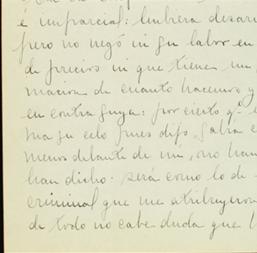 é imparcial: hubiera desar
pero no negó ni su labor en
de precios ni que tienen un
macion de cuanto hacemos y
en contra suya: por cierto q.
ma su celo pues dijo
menos delante de mi, no han
han dicho: será como lo de
criminal que me atribuyeron
de todo no cabe duda que l